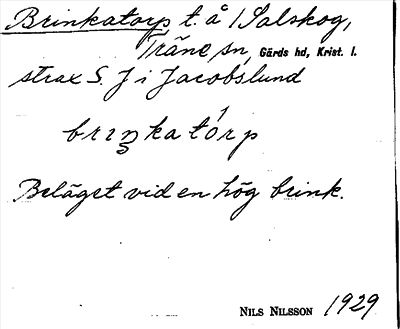 Brinkatorp t. å 1 Salskog,
Träne sn, Gärds hd, Krist. l.
strax S. J i Jacobslund
brıŋkatórp
Beläget vid en hög brink.
NILS NILSSON 1929